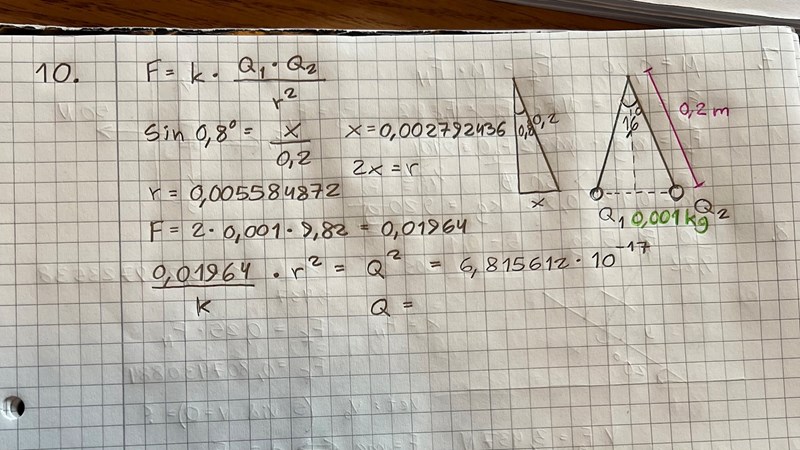 10. F = k · Q₁ · Q₂ / r²
Sin 0,8° = x / 0,2 x = 0,002792436
2x = r
r = 0,005584872
F = 2 · 0,001 · 9,82 = 0,01964
0,01964 / k · r² = Q² = 6,815612 · 10⁻¹⁷
Q =
0,8 0,2
x
16°
0,2 m
Q₁ 0,001 kg Q₂